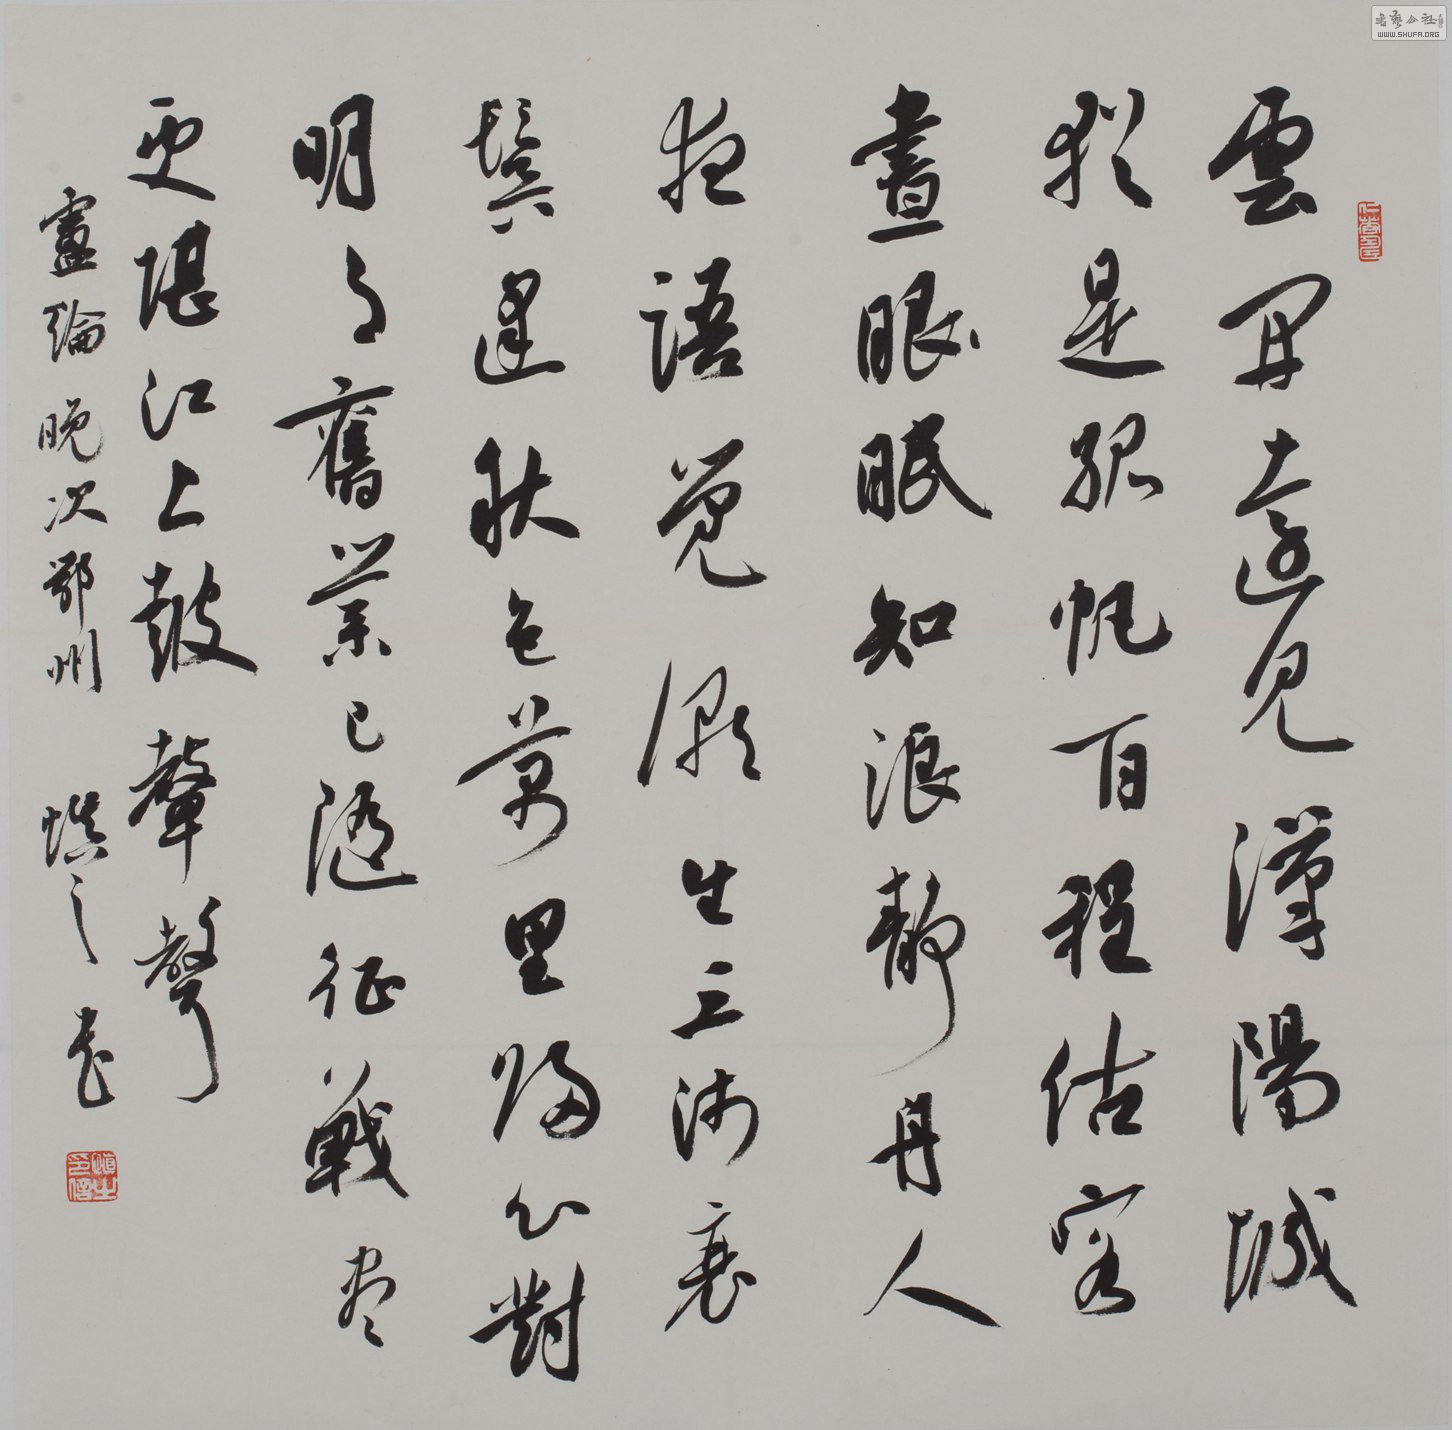 雲開遠見漢陽城
猶是孤帆一日程估客
晝眼眠知浪靜舟人
夜語覺潮生三湘衰
鬢逢秋色萬里歸心對
明月舊業已隨征戰盡
更堪江上鼓鼙聲
盧綸晚次鄂州 慎之書
慎之印信
書藝公社
WWW.SHUFA.ORG